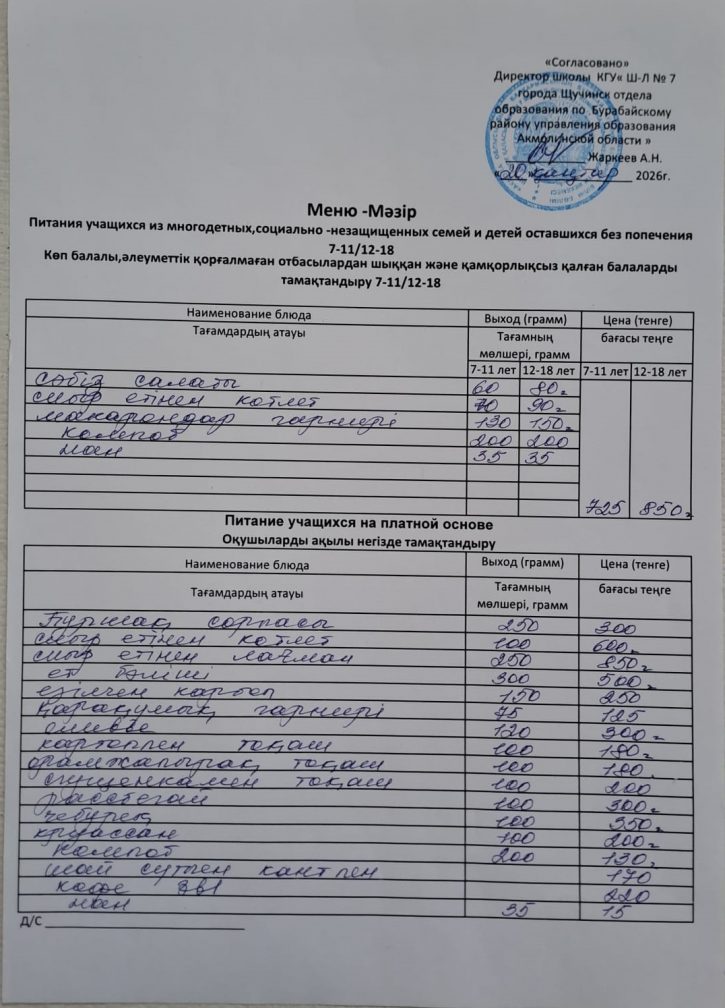 «Согласовано»
Директор школы КГУ« Ш-Л № 7
города Щучинск отдела
образования по Бурабайскому
району управления образования
Акмолинской области »
Жаркеев А.Н.
«20» қаңтар 2026г.
Меню -Мәзір
Питания учащихся из многодетных,социально -незащищенных семей и детей оставшихся без попечения
7-11/12-18
Көп балалы,әлеуметтік қорғалмаған отбасылардан шыққан және қамқорлықсыз қалған балаларды
тамақтандыру 7-11/12-18
Наименование блюда Выход (грамм) Цена (тенге)
Тағамдардың атауы Тағамның мөлшері, грамм бағасы теңге
7-11 лет 12-18 лет 7-11 лет 12-18 лет
сәбіз салаты 60 80г
сиыр етінен котлет 70 90г
макарондар гарнирі 130 150г
компот 200 200
нан 35 35
725 850г
Питание учащихся на платной основе
Оқушыларды ақылы негізде тамақтандыру
Наименование блюда Выход (грамм) Цена (тенге)
Тағамдардың атауы Тағамның мөлшері, грамм бағасы теңге
Бұршақ сорпасы 250 300
сиыр етінен котлет 100 600
сиыр етінен лағман 250 850
ет бәліші 300 500
езілген картоп 150 250
Қарақұмық гарнирі 75 125
120 300
картоппен тоқаш 100 180
орамжапырақ тоқаш 100 180
сгущенкамен тоқаш 100 200
расстегай 100 300
чебурек 100 350
круассан 100 200
Компот 200 130
шай сүтпен кантпен 170
кофе 3в1 220
нан 35 15
Д/С